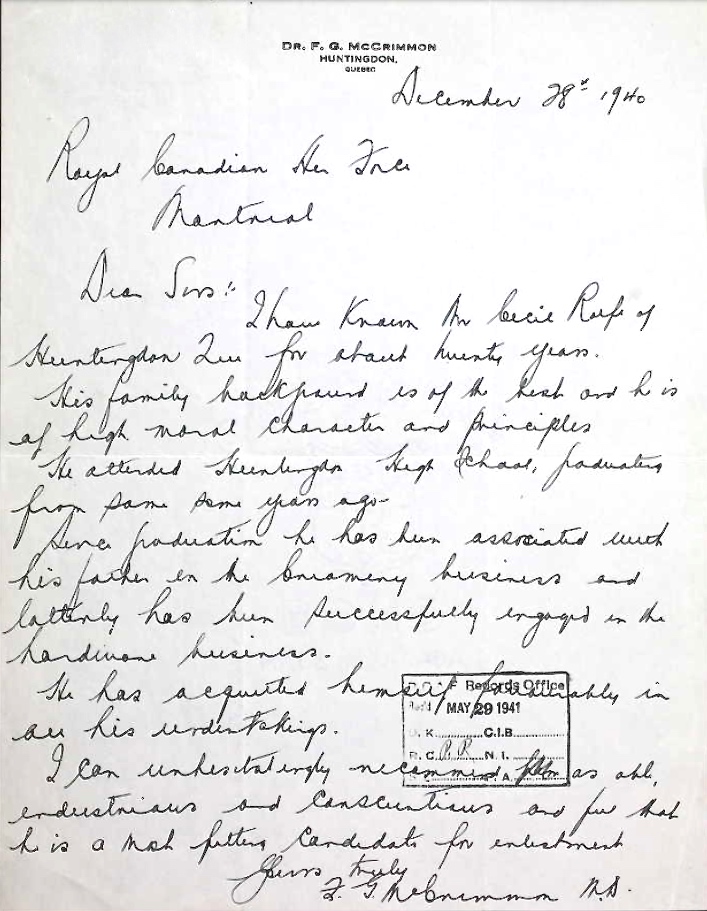 DR. F. G. MCCRIMMON
HUNTINGDON,
QUEBEC
December 28th 1940
Royal Canadian Air Force
Montreal
Dear Sirs:-
I have known Mr Cecil Rolfe of
Huntingdon Que for about twenty years.
His family background is of the best and he is
of high moral character and principles
He attended Huntingdon High School, graduating
from same some years ago-
Since graduation he has been associated with
his father in the Creamery business and
latterly has been successfully engaged in the
hardware business.
He has acquitted himself favourably in
all his undertakings.
R.C.A.F Records Office
Rec'd MAY 29 1941
C.I.B.
R.C. N.I.
A.
I can unhesitatingly recommend him as able,
industrious and conscientious and feel that
he is a most fitting candidate for enlistment
Yours truly
F. G. McCrimmon M.D.